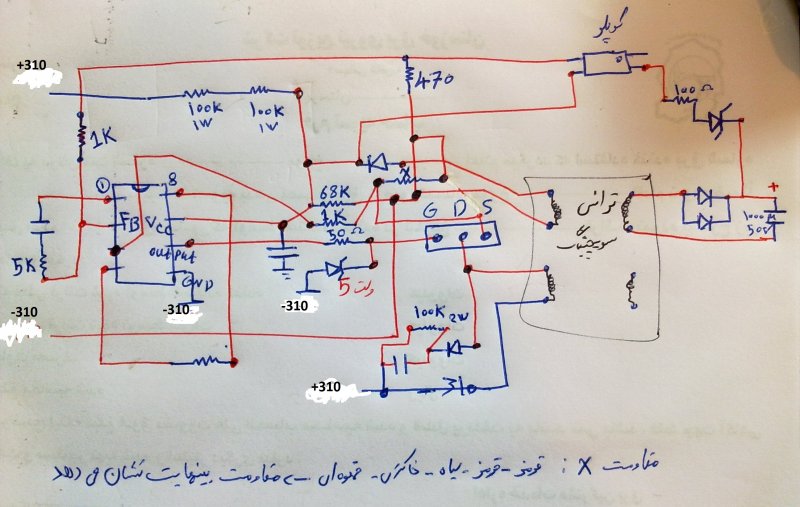 کوپلر
+310
470
100Ω
100K
1W
100K
1W
1K
① 8
68K
1K
X
FB Vcc
50Ω
G D S
ترانس
سوییچینگ
+
1000M
50V
out put
5K
GND
5 ولت
-310
-310
-310
100K 2W
+310
مقاومت X : قرمز - قرمز - سیاه - خاکستری - قهوه‌ای ← مقاومت بینهایت نشان می دهد